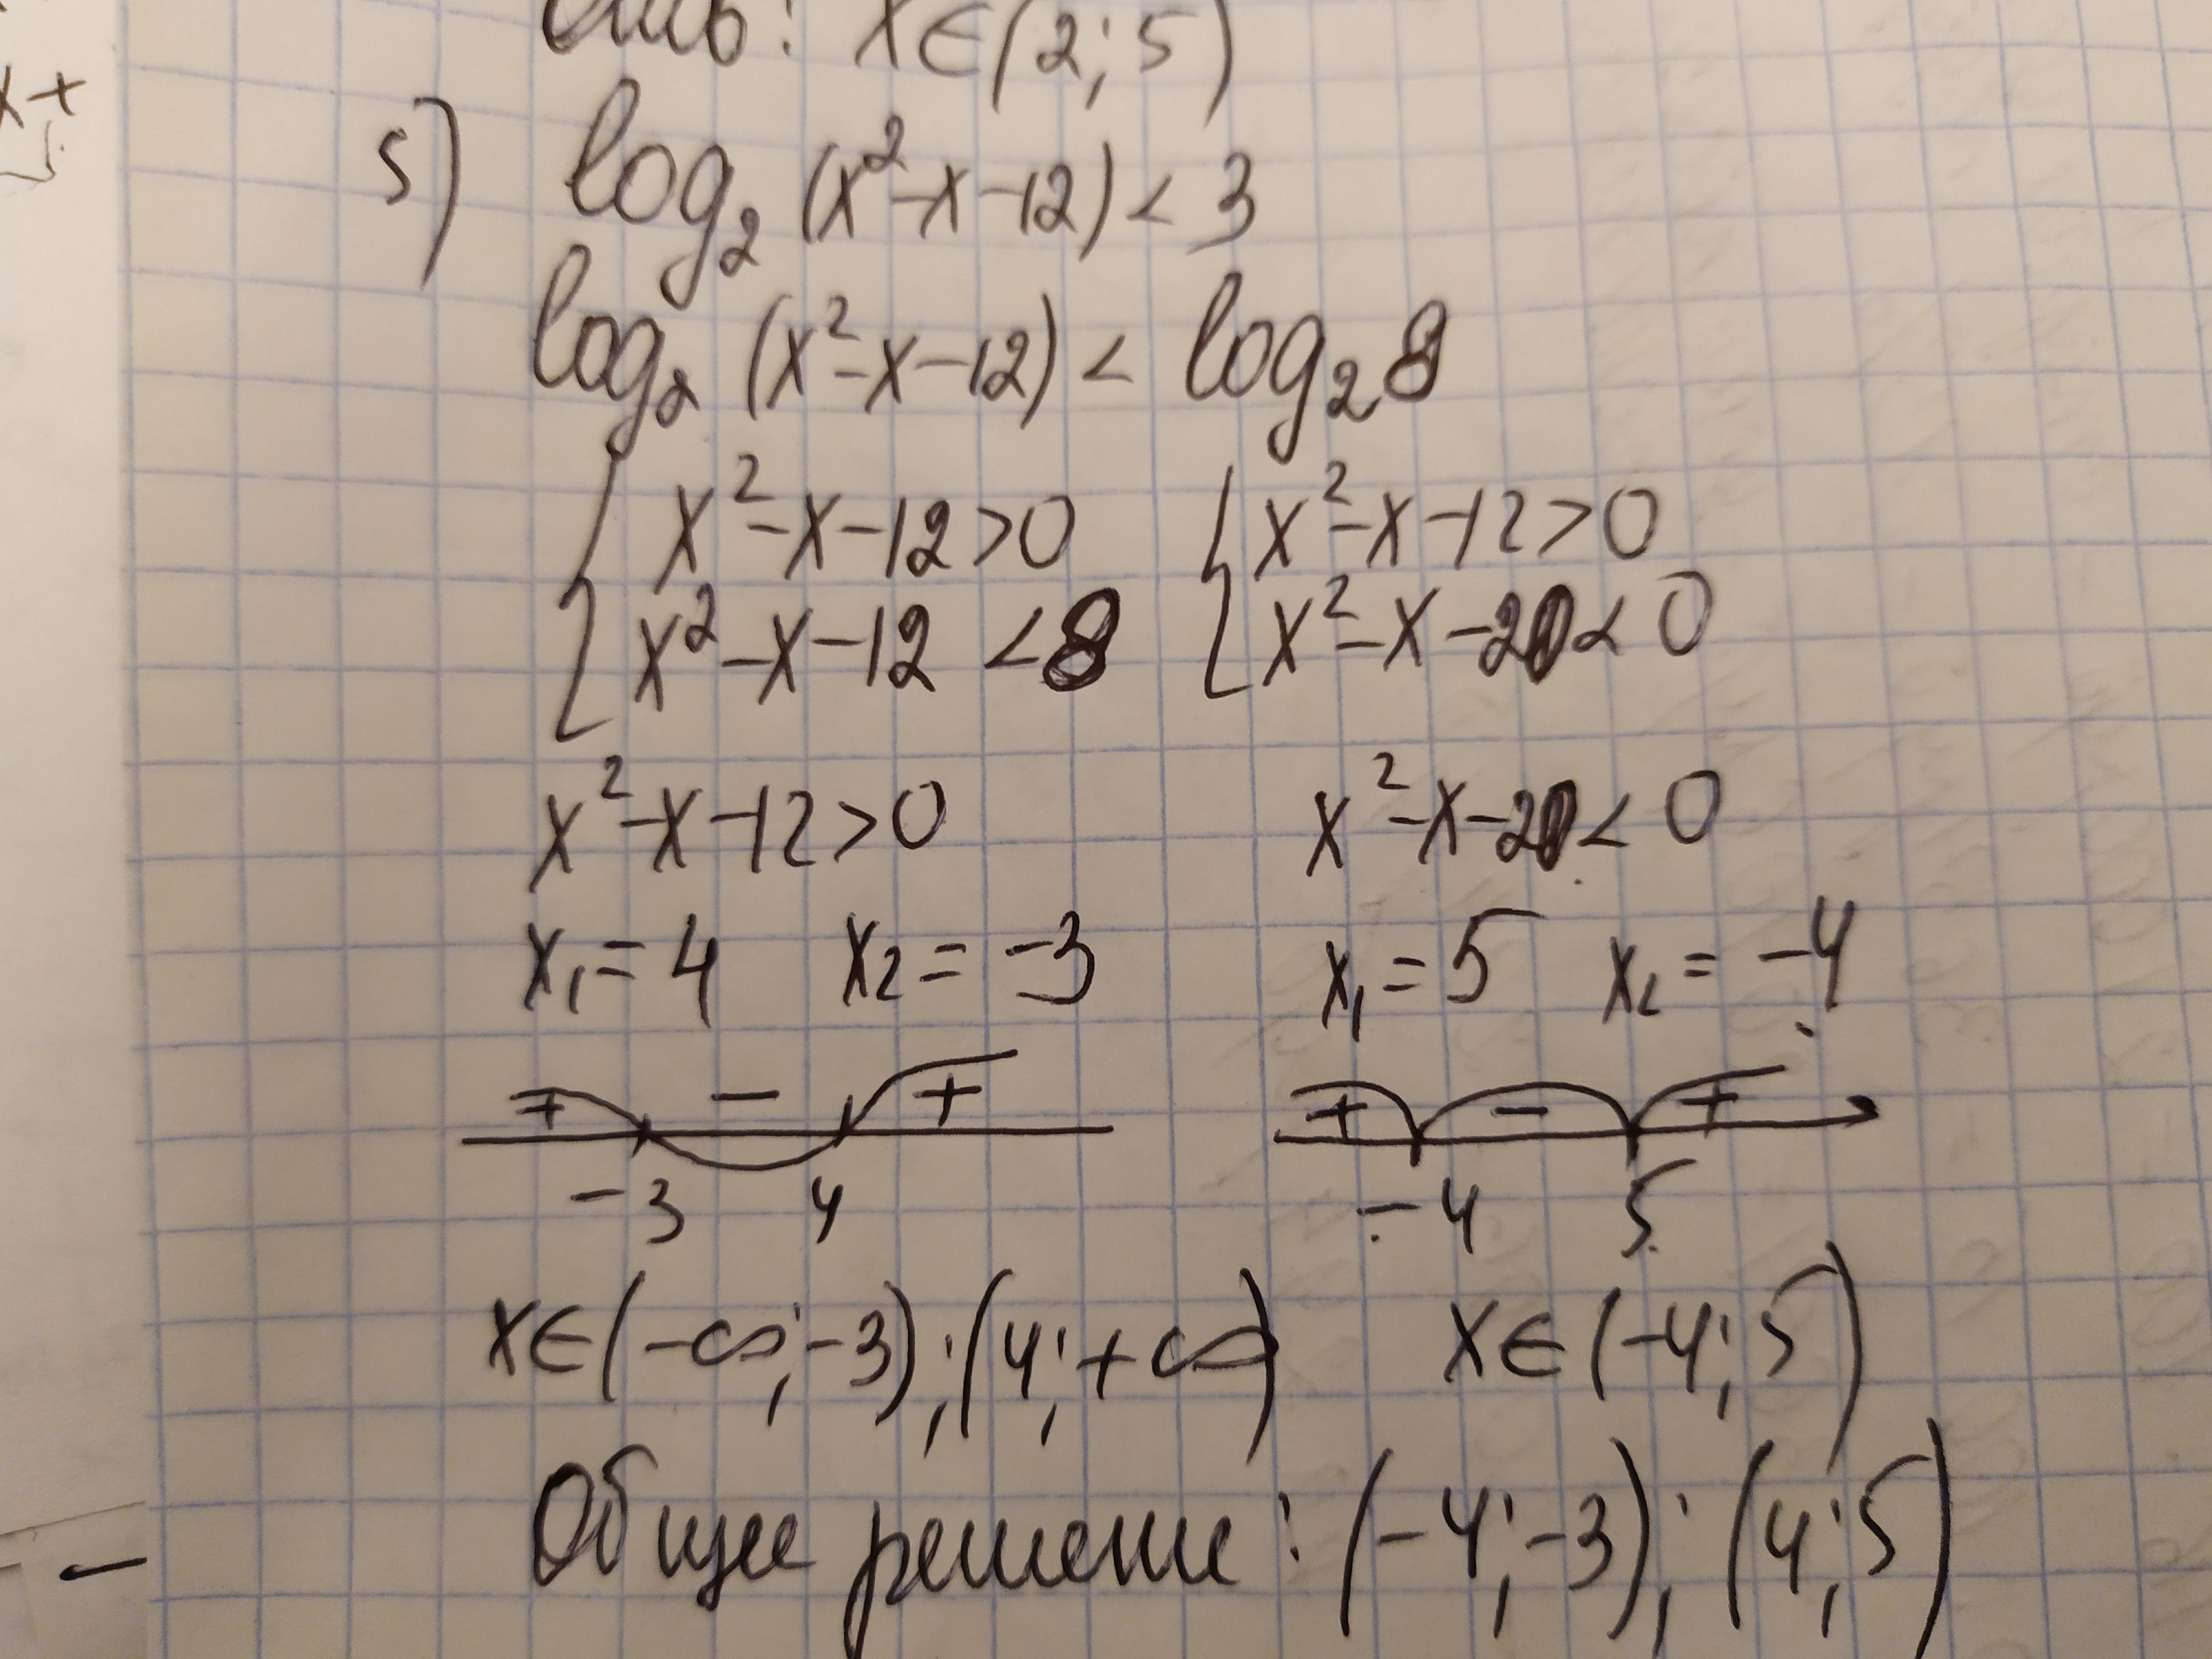 x∈(2;5)
x+
5) log₂ (x²-x-12) < 3
log₂ (x²-x-12) < log₂ 8
{ x²-x-12>0 { x²-x-12>0
{ x²-x-12 <8 { x²-x-20< 0
x²-x-12>0 x²-x-20< 0
x₁= 4 x₂= -3 x₁= 5 x₂= -4
+ - + + - +
-3 4 -4 5
x∈(-∞;-3);(4;+∞) x∈(-4;5)
Общее решение: (-4;-3);(4;5)